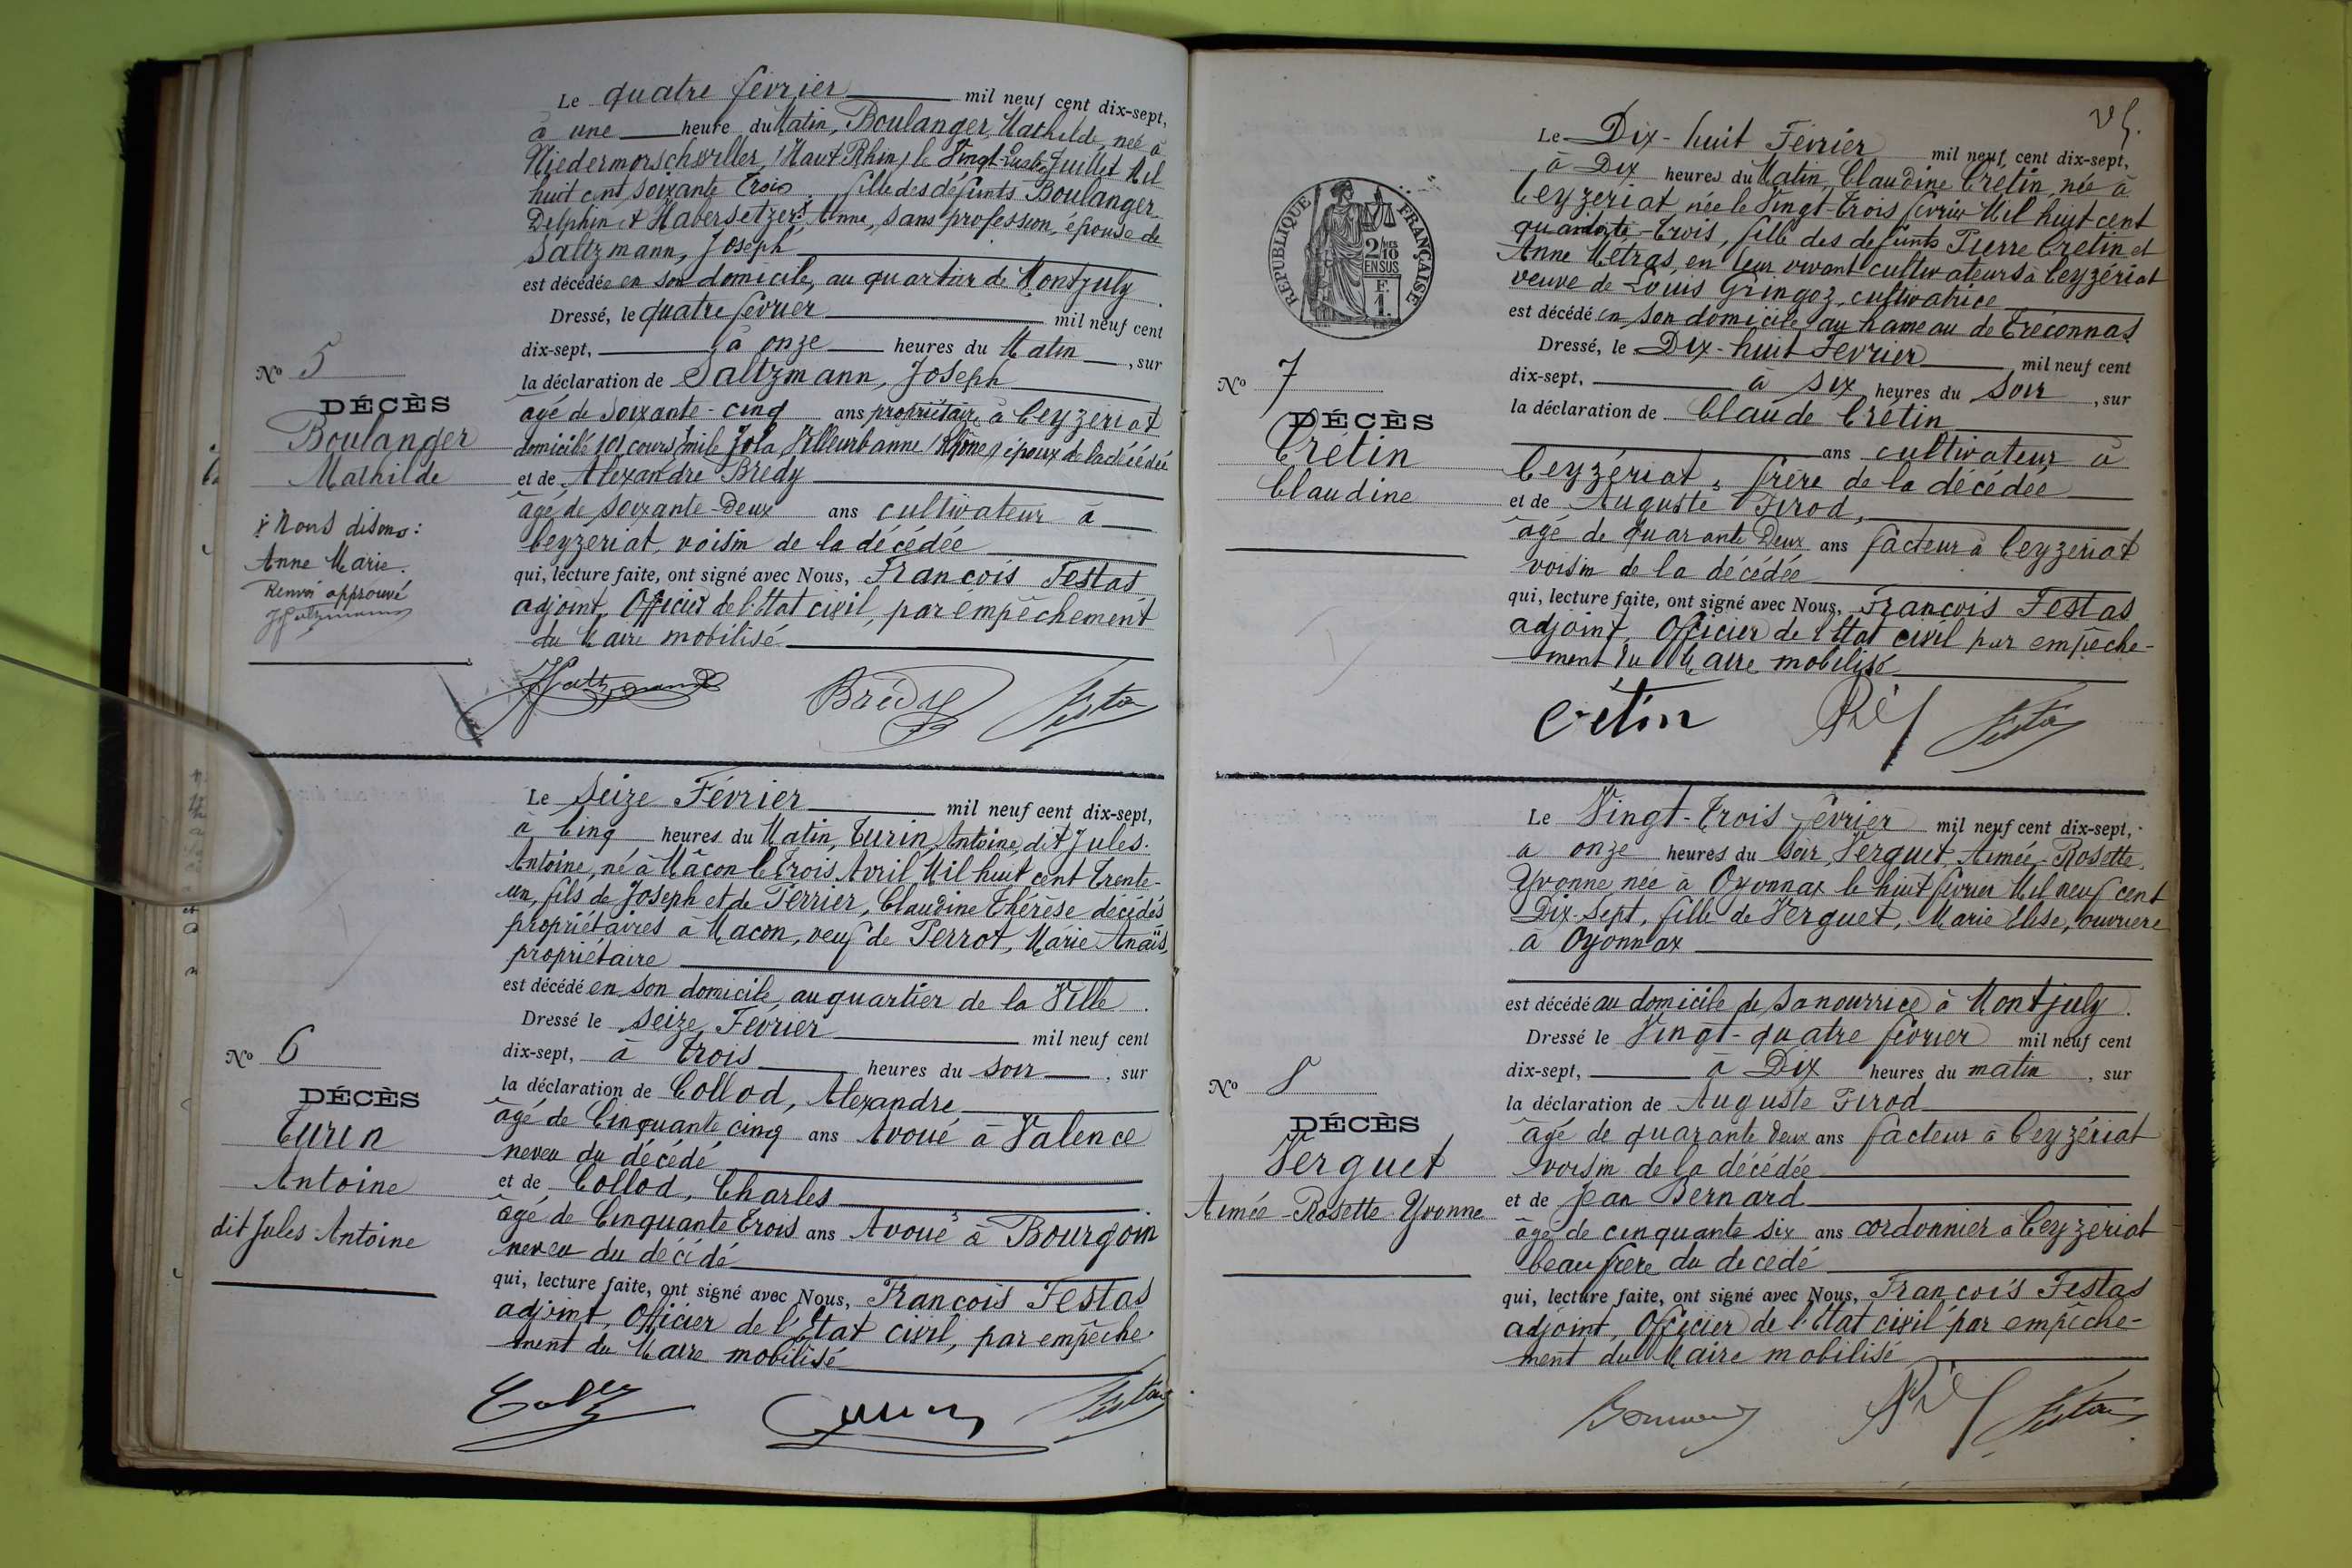 Le quatre février mil neuf cent dix-sept,
à une heure du Matin, Boulanger, Mathilde, née à
Niedermorschwiller, (Haut Rhin) le Vingt-quatre Juillet Mil
huit cent soixante Trois, fille des défunts Boulanger
Delphin & Habersetzer Anne, sans profession, épouse de
Saltzmann, Joseph
est décédée en son domicile, au quartier de Montjuly.
Dressé, le quatre février mil neuf cent
dix-sept, à onze heures du Matin, sur
la déclaration de Saltzmann, Joseph
âgé de soixante-cinq ans propriétaire à Ceyzériat
domicilié 101 cours Emile Zola Villeurbanne (Rhône) époux de la décédée
et de Alexandre Bredy
âgé de soixante-Deux ans cultivateur à
Ceyzériat, voisin de la décédée
qui, lecture faite, ont signé avec Nous, François Festas
adjoint, Officier de l'Etat civil, par empêchement
du Maire mobilisé
Bredy
Nº 5
DÉCÈS
Boulanger
Mathilde
Nous disons:
Anne Marie.
Renvoi approuvé
Le Seize Février mil neuf cent dix-sept,
à Cinq heures du Matin, Turin, Antoine, dit Jules.
Antoine, né à Mâcon le Trois Avril Mil huit cent Trente-
un, fils de Joseph et de Perrier, Claudine Thérèse décédés
propriétaires à Macon, veuf de Perrot, Marie Anaïs,
propriétaire
est décédé en son domicile, au quartier de la Ville.
Dressé le seize Février mil neuf cent
dix-sept, à trois heures du soir, sur
la déclaration de Collod, Alexandre
âgé de Cinquante cinq ans Avoué à Valence
neveu du décédé
et de Collod, Charles
âgé de Cinquante trois ans Avoué à Bourgoin
neveu du décédé
qui, lecture faite, ont signé avec Nous, François Festas
adjoint, Officier de l'Etat civil, par empêche-
ment du Maire mobilisé
Nº 6
DÉCÈS
Turin
Antoine
dit Jules Antoine
RÉPUBLIQUE FRANÇAISE
2/10
EN SUS
F.
1.
Le Dix-huit Février mil neuf cent dix-sept,
à Dix heures du Matin, Claudine Cretin, née à
Ceyzeriat née le Vingt-Trois février Mil huit cent
quarante-Trois, fille des defunts Pierre Cretin et
Anne Métras, en leur vivant cultivateurs à Ceyzériat
veuve de Louis Gringoz, cultivatrice
est décédé en son domicile au hameau de Tréconnas
Dressé, le Dix-huit Fevrier mil neuf cent
dix-sept, à six heures du soir, sur
la déclaration de Claude Cretin
ans cultivateur à
Ceyzériat, frère de la décédée
et de Auguste Pirod,
âgé de quarante Deux ans facteur à Ceyzeriat
voisin de la décédée
qui, lecture faite, ont signé avec Nous, François Festas
adjoint, Officier de l'Etat civil par empêche-
ment du Maire mobilisé
Crétin
Nº 7
DÉCÈS
Crétin
Claudine
Le Vingt-Trois février mil neuf cent dix-sept,
à onze heures du soir, Verguet, Aimée, Rosette,
Yvonne, née à Oyonnax le huit février Mil neuf cent
Dix-Sept, fille de Verguet, Marie Elise, ouvriere
à Oyonnax
est décédé au domicile de sa nourrice à Montjuly.
Dressé le Vingt-quatre février mil neuf cent
dix-sept, à Dix heures du matin, sur
la déclaration de Auguste Pirod
âgé de quarante deux ans facteur à Ceyzériat
voisin de la décédée
et de Jean Bernard
âgé de cinquante six ans cordonnier à Ceyzeriat
beau frere du decedé
qui, lecture faite, ont signé avec Nous, François Festas
adjoint, Officier de l'Etat civil par empêche-
ment du Maire mobilisé
Nº 8
DÉCÈS
Verguet
Aimée-Rosette-Yvonne